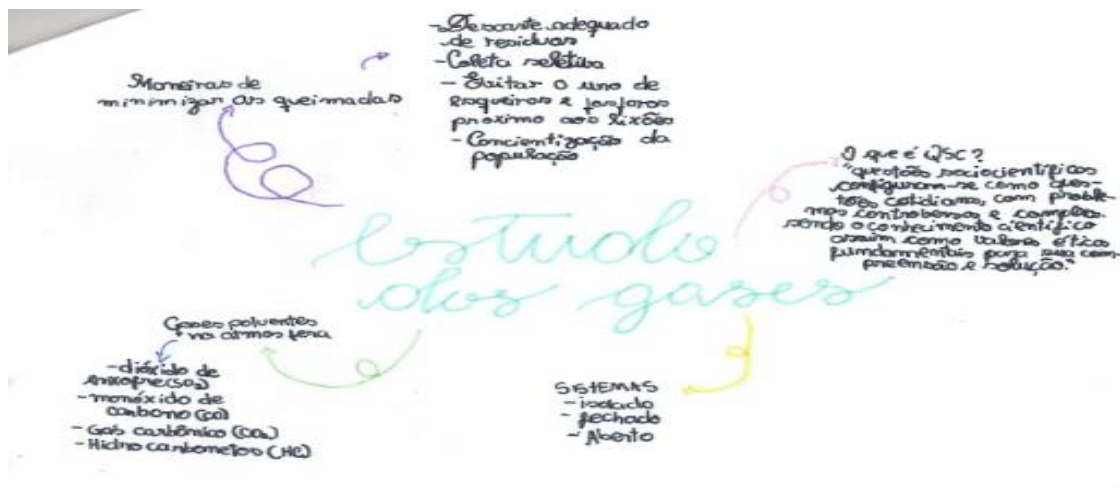 Maneiras de
minimizar as queimadas
-Descarte adequado
de residuos
-Coleta seletiva
- Evitar o uso de
esqueiros e fosforos
proximo aos lixões
- Concientização da
população
O que é QSC?
"questões sociocientíficas
configuram-se como ques-
tões cotidianas, com proble-
mas controversos e complexos
sendo o conhecimento científico
assim como valores éticos
fundamentais para sua com-
preensão e solução."
estudo
dos gases
Gases poluentes
na atmosfera
-dióxido de
enxofre (SO₂)
-monóxido de
carbono (CO)
- Gás carbônico (CO₂)
- Hidrocarbonetos (HC)
SISTEMAS
- isolado
- fechado
- Aberto